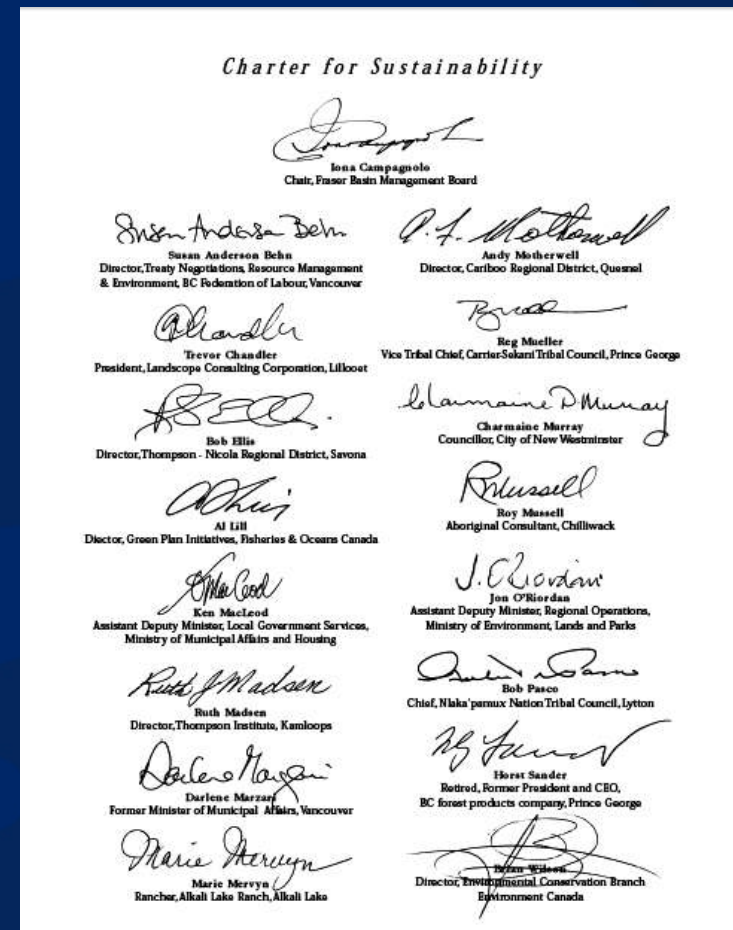 Charter for Sustainability
Iona Campagnolo
Chair, Fraser Basin Management Board
Susan Anderson Behn
Susan Anderson Behn
Director, Treaty Negotiations, Resource Management
& Environment, BC Federation of Labour, Vancouver
Trevor Chandler
President, Landscope Consulting Corporation, Lillooet
Bob Ellis
Director, Thompson - Nicola Regional District, Savona
Al Lill
Diector, Green Plan Initiatives, Fisheries & Oceans Canada
Ken MacLeod
Assistant Deputy Minister, Local Government Services,
Ministry of Municipal Affairs and Housing
Ruth J Madsen
Ruth Madsen
Director, Thompson Institute, Kamloops
Darlene Marzari
Darlene Marzari
Former Minister of Municipal Affairs, Vancouver
Marie Mervyn
Marie Mervyn
Rancher, Alkali Lake Ranch, Alkali Lake
A. F. Motherwell
Andy Motherwell
Director, Cariboo Regional District, Quesnel
Reg Mueller
Vice Tribal Chief, Carrier-Sekani Tribal Council, Prince George
Charmaine D Murray
Charmaine Murray
Councillor, City of New Westminster
R Mussell
Roy Mussell
Aboriginal Consultant, Chilliwack
J. O'Riordan
Jon O'Riordan
Assistant Deputy Minister, Regional Operations,
Ministry of Environment, Lands and Parks
Bob Pasco
Chief, Nlaka'pamux Nation Tribal Council, Lytton
Horst Sander
Retired, Former President and CEO,
BC forest products company, Prince George
Brian Wilson
Director, Environmental Conservation Branch
Environment Canada